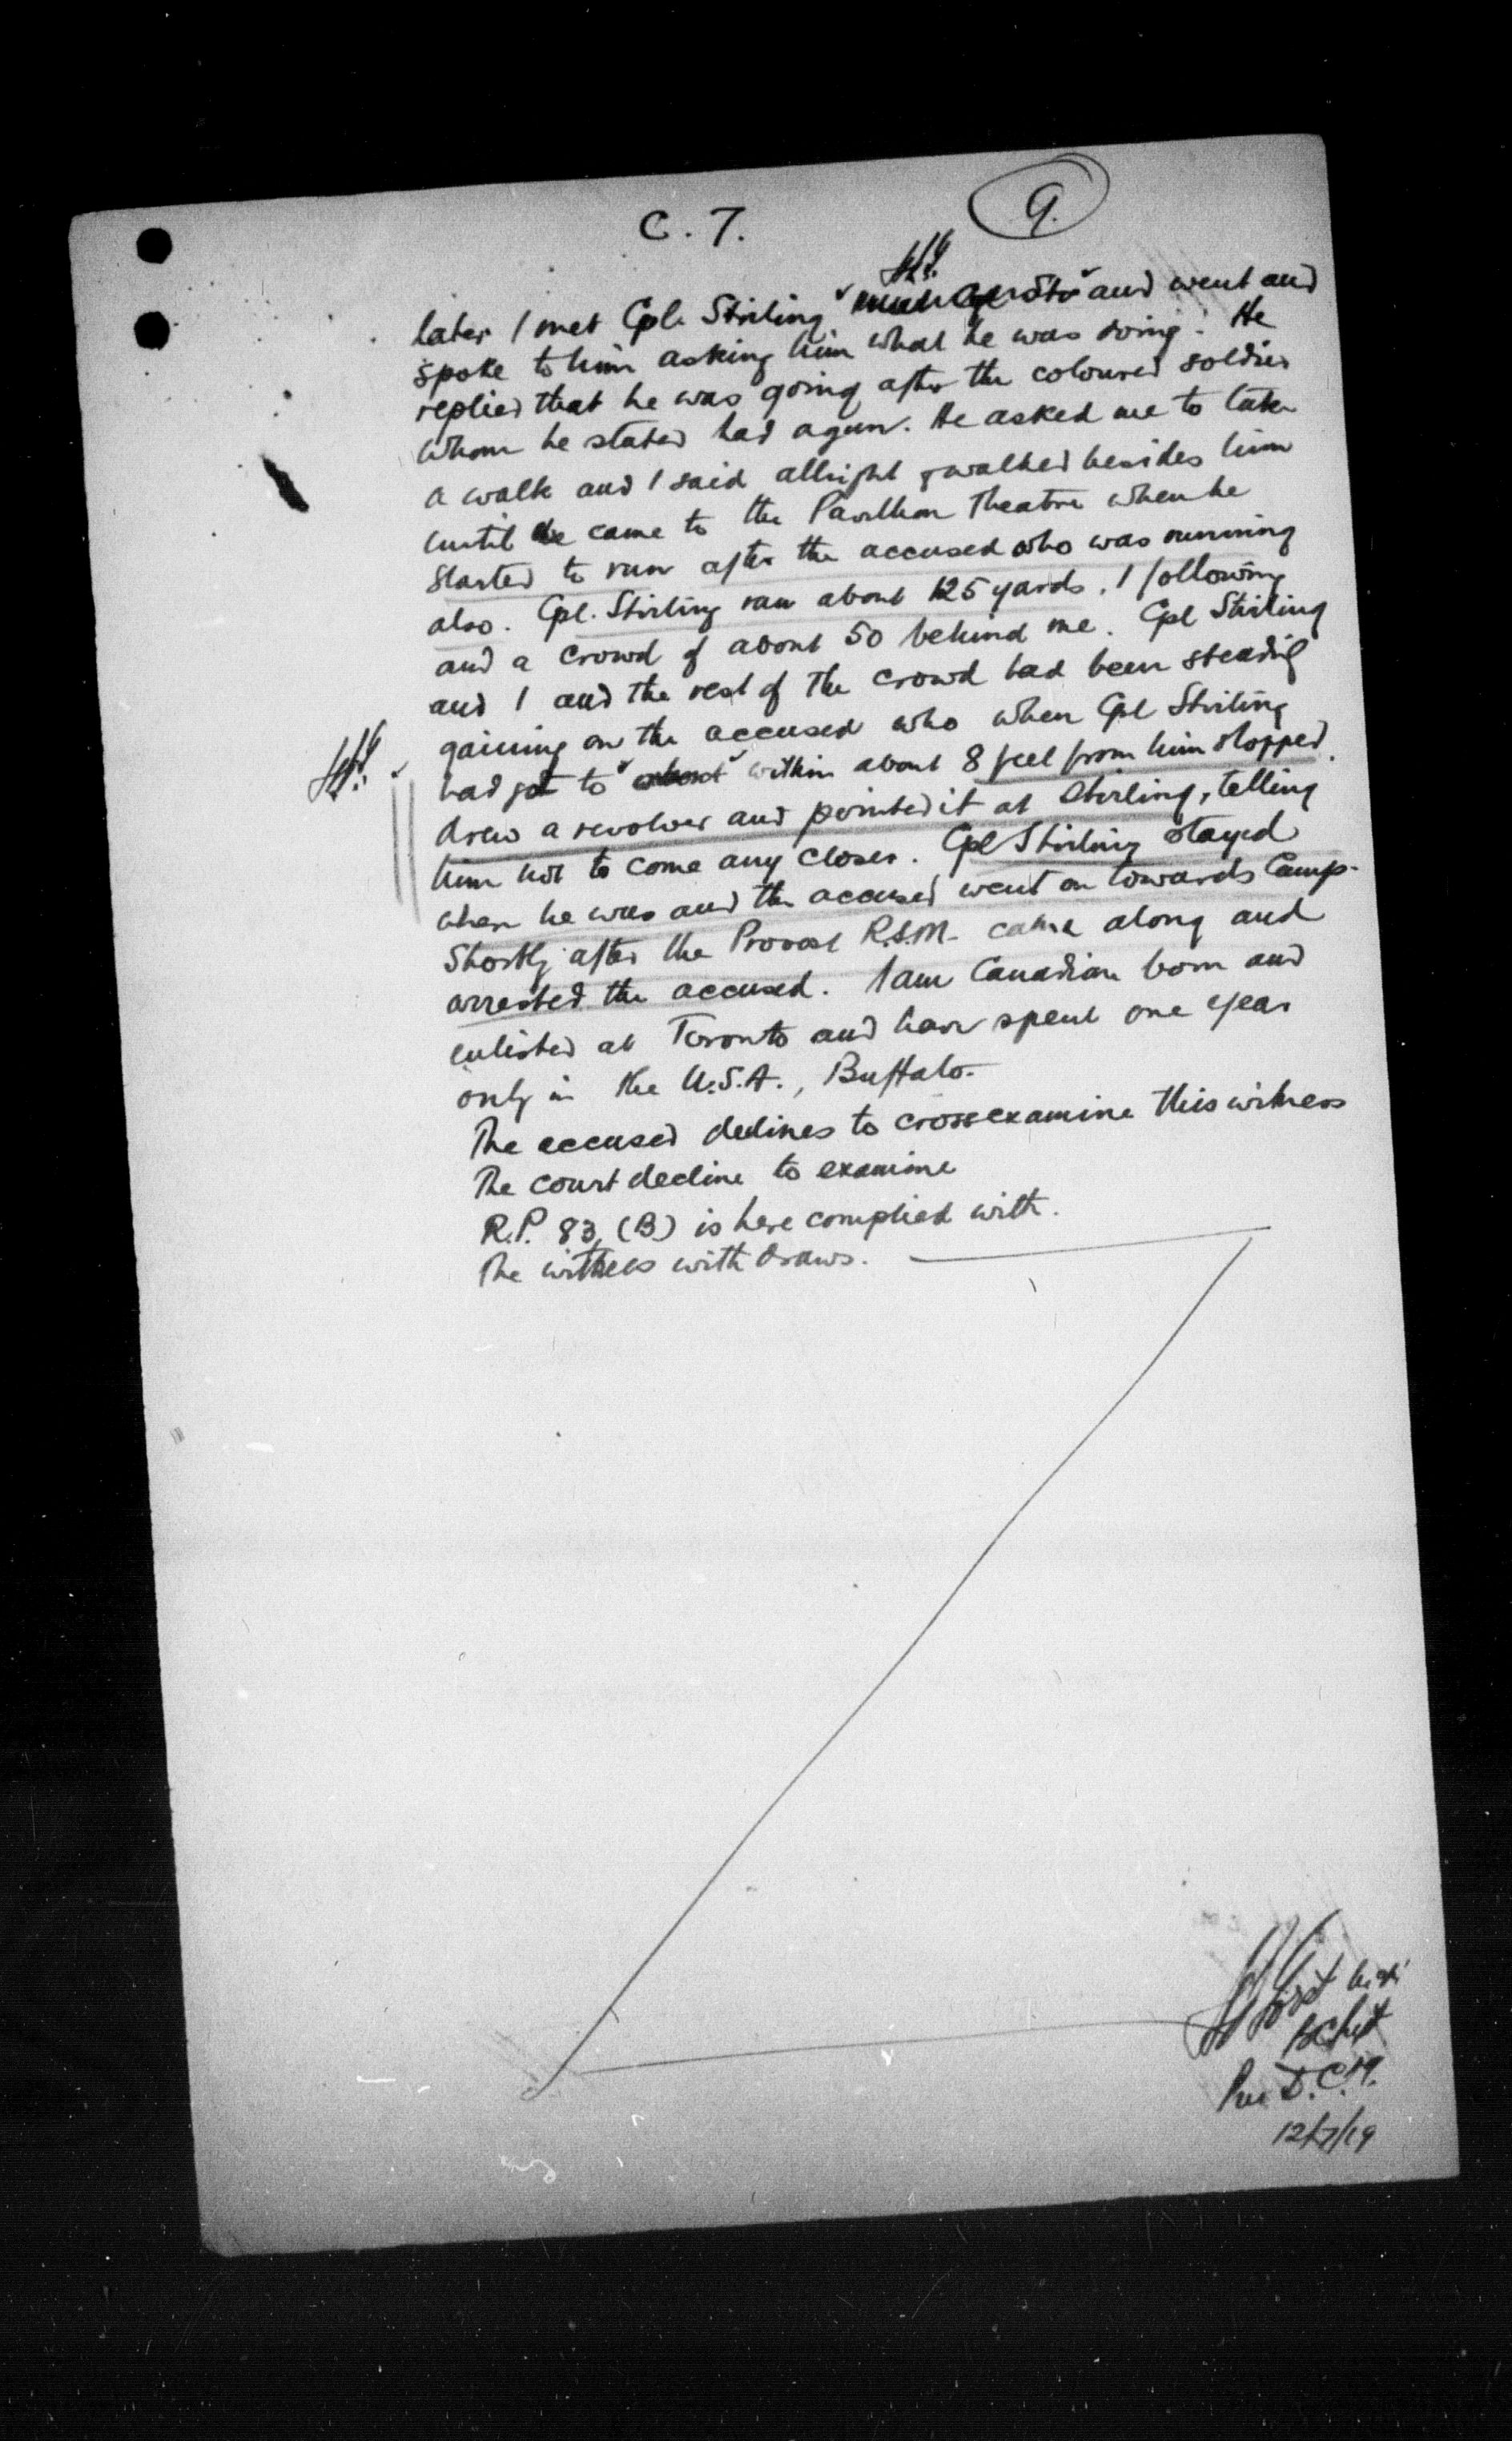 C. 7.
9.
later I met Cpl. Stirling and went and
spoke to him asking him what he was doing. He
replied that he was going after the coloured soldier
whom he stated had a gun. He asked me to take
a walk and I said allright & walked besides him
until he came to the Pavillion Theatre when he
started to run after the accused who was running
also. Cpl. Stirling ran about 125 yards. I following
and a crowd of about 50 behind me. Cpl Stirling
and I and the rest of the crowd had been steadily
gaining on the accused who when Cpl Stirling
had got to about within about 8 feet from him stopped.
drew a revolver and pointed it at Stirling, telling
him not to come any closer. Cpl Stirling stayed
where he was and the accused went on towards Camp.
Shortly after the Provost R.S.M. came along and
arrested the accused. I am Canadian born and
enlisted at Toronto and have spent one year
only in the U.S.A., Buffalo.
The accused declines to cross examine this witness
The court decline to examine
R.P. 83 (B) is here complied with.
The witness withdraws.
D.C.M.
12/7/19